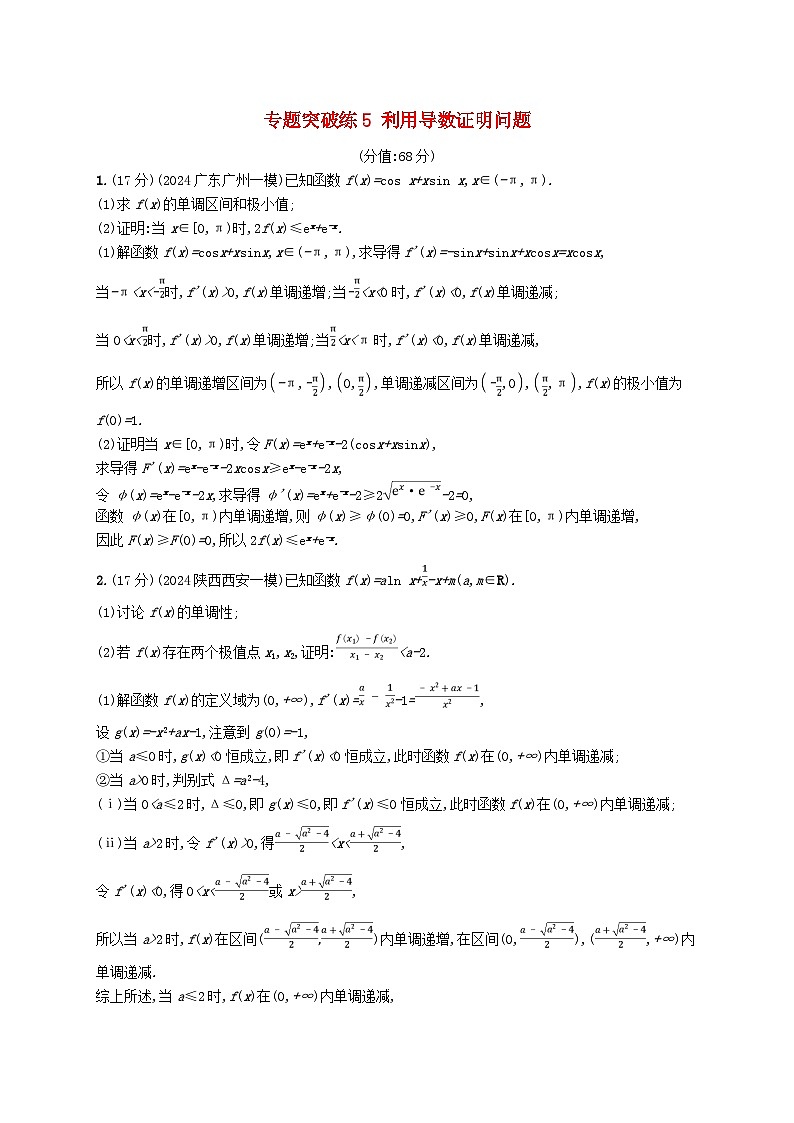 专题突破练5 利用导数证明问题
(分值:68分)
1.(17分)(2024广东广州一模)已知函数f(x)=cos x+xsin x,x∈(-π,π).
(1)求f(x)的单调区间和极小值;
(2)证明:当x∈[0,π)时,2f(x)≤eˣ+e⁻ˣ.
(1)解函数f(x)=cosx+xsinx,x∈(-π,π),求导得f'(x)=-sinx+sinx+xcosx=xcosx,
当-π<x<-π/2时,f'(x)>0,f(x)单调递增;当-π/2<x<0时,f'(x)<0,f(x)单调递减;
当0<x<π/2时,f'(x)>0,f(x)单调递增;当π/2<x<π时,f'(x)<0,f(x)单调递减,
所以f(x)的单调递增区间为(-π,-π/2),(0,π/2),单调递减区间为(-π/2,0),(π/2,π),f(x)的极小值为
f(0)=1.
(2)证明当x∈[0,π)时,令F(x)=eˣ+e⁻ˣ-2(cosx+xsinx),
求导得F'(x)=eˣ-e⁻ˣ-2xcosx≥eˣ-e⁻ˣ-2x,
令φ(x)=eˣ-e⁻ˣ-2x,求导得φ'(x)=eˣ+e⁻ˣ-2≥2√(eˣ·e⁻ˣ)-2=0,
函数φ(x)在[0,π)内单调递增,则φ(x)≥φ(0)=0,F'(x)≥0,F(x)在[0,π)内单调递增,
因此F(x)≥F(0)=0,所以2f(x)≤eˣ+e⁻ˣ.
2.(17分)(2024陕西西安一模)已知函数f(x)=aln x+1/x-x+m(a,m∈R).
(1)讨论f(x)的单调性;
(2)若f(x)存在两个极值点x₁,x₂,证明:(f(x₁)-f(x₂))/(x₁-x₂)<a-2.
(1)解函数f(x)的定义域为(0,+∞),f'(x)=a/x-1/x²-1=(-x²+ax-1)/x²,
设g(x)=-x²+ax-1,注意到g(0)=-1,
①当a≤0时,g(x)<0恒成立,即f'(x)<0恒成立,此时函数f(x)在(0,+∞)内单调递减;
②当a>0时,判别式Δ=a²-4,
(ⅰ)当0<a≤2时,Δ≤0,即g(x)≤0,即f'(x)≤0恒成立,此时函数f(x)在(0,+∞)内单调递减;
(ⅱ)当a>2时,令f'(x)>0,得(a-√(a²-4))/2<x<(a+√(a²-4))/2,
令f'(x)<0,得0<x<(a-√(a²-4))/2或x>(a+√(a²-4))/2,
所以当a>2时,f(x)在区间((a-√(a²-4))/2,(a+√(a²-4))/2)内单调递增,在区间(0,(a-√(a²-4))/2),((a+√(a²-4))/2,+∞)内
单调递减.
综上所述,当a≤2时,f(x)在(0,+∞)内单调递减,